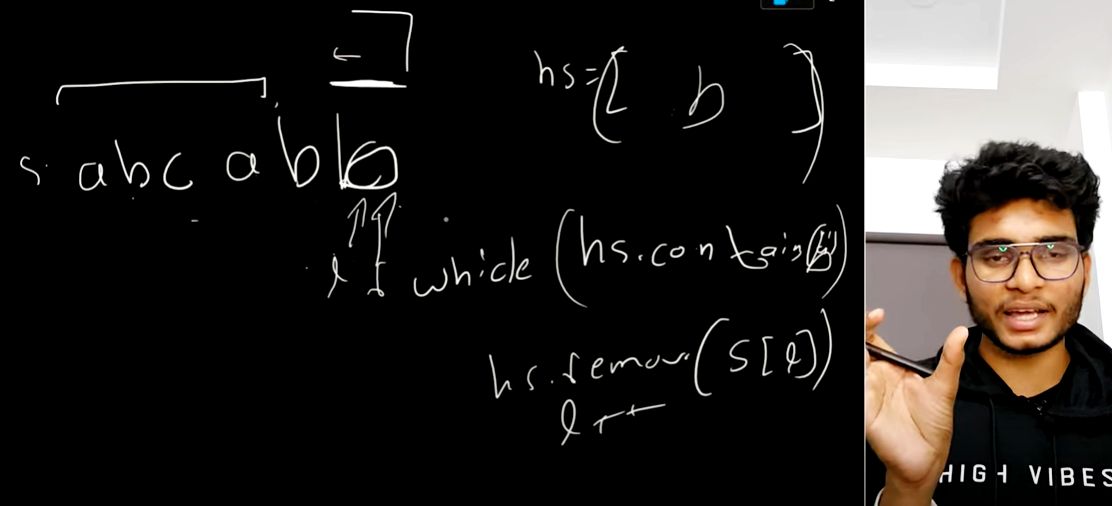 hs=[ b ]
s: abc abb
l r
while (hs.contains(b))
hs.remove(s[l])
l++
HIGH VIBES